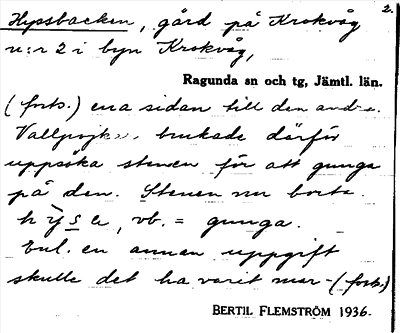 2.
Hyssbacken, gård på Krokvåg
n:r 2 i byn Krokvåg,
Ragunda sn och tg, Jämtl. län.
(forts.) ena sidan till den andra.
brukade därför
uppsöka stenen för att gunga
på den. Stenen nu borta.
vb. = gunga.
Enl. en annan uppgift
skulle det ha varit mar- (forts.)
BERTIL FLEMSTRÖM 1936.